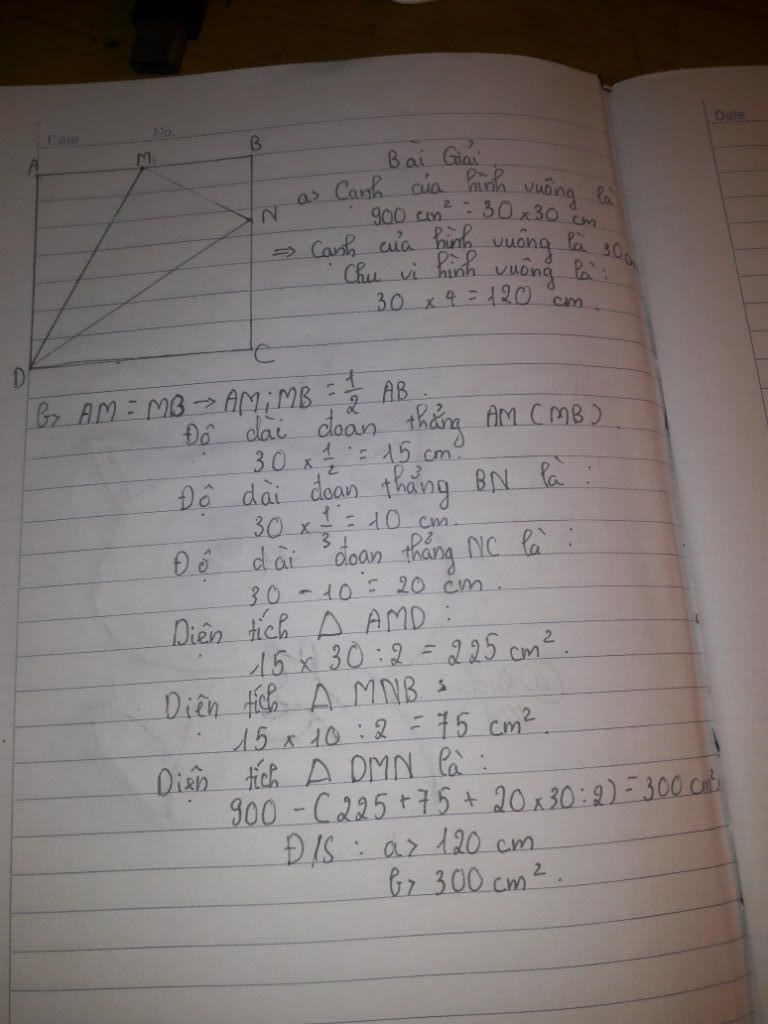 Date No.
Date
A M B
N
D C
Bài Giải
a> Cạnh của hình vuông là
900 cm² = 30 x 30 cm
=> Cạnh của hình vuông là 30
Chu vi hình vuông là:
30 x 4 = 120 cm.
b> AM = MB → AM; MB = 1/2 AB.
Độ dài đoạn thẳng AM (MB)
30 x 1/2 = 15 cm.
Độ dài đoạn thẳng BN là :
30 x 1/3 = 10 cm.
Độ dài đoạn thẳng NC là :
30 - 10 = 20 cm.
Diện tích Δ AMD :
15 x 30 : 2 = 225 cm².
Diện tích Δ MNB :
15 x 10 : 2 = 75 cm².
Diện tích Δ DMN là :
900 - (225 + 75 + 20 x 30 : 2) = 300 cm²
Đ/S : a> 120 cm
b> 300 cm².